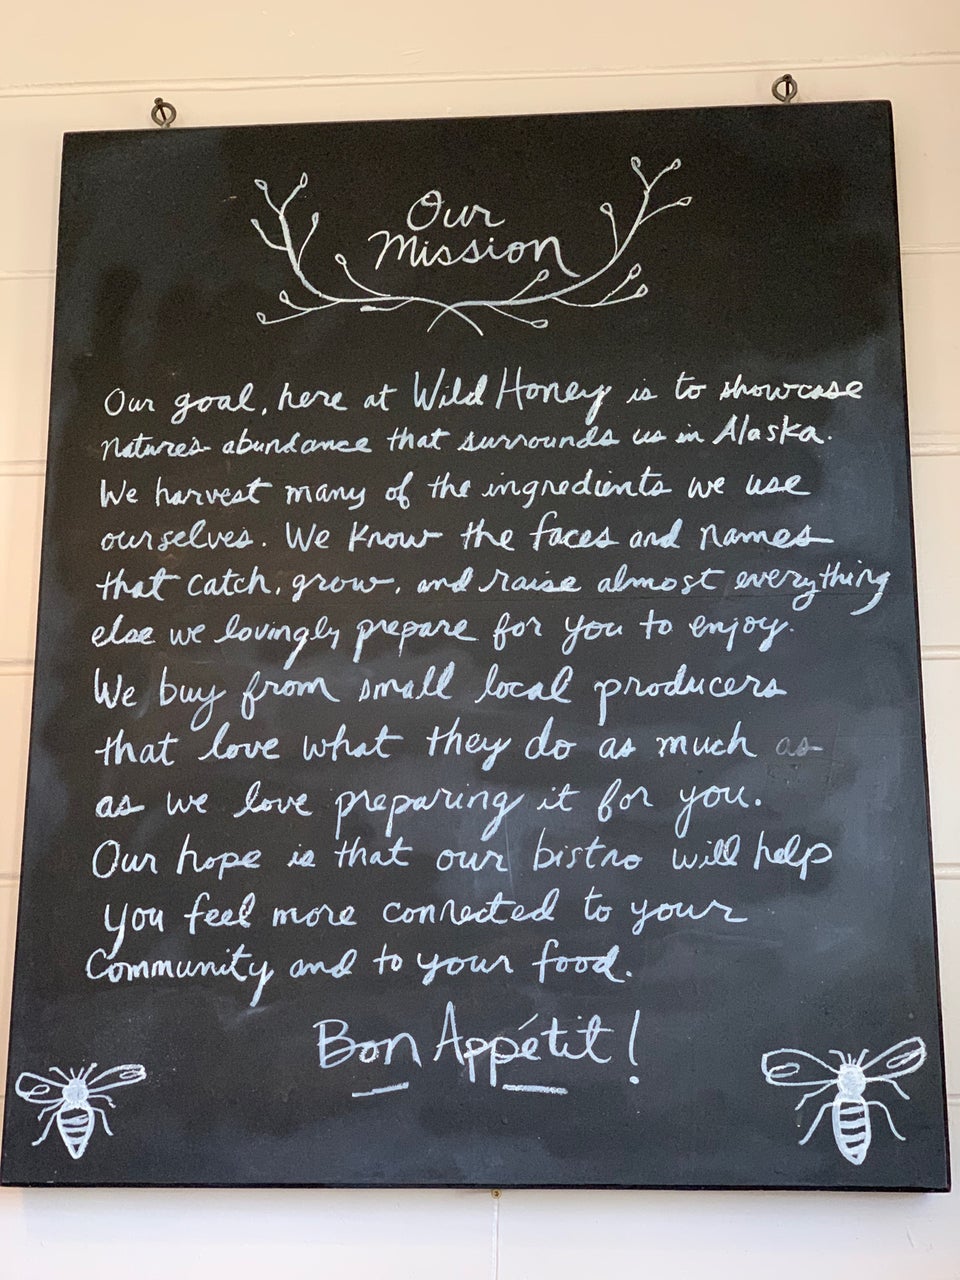 Our
Mission
Our goal, here at Wild Honey is to showcase
natures abundance that surrounds us in Alaska.
We harvest many of the ingredients we use
ourselves. We know the faces and names
that catch, grow, and raise almost everything
else we lovingly prepare for you to enjoy.
We buy from small local producers
that love what they do as much as
as we love preparing it for you.
Our hope is that our bistro will help
you feel more connected to your
Community and to your food.
Bon Appétit!